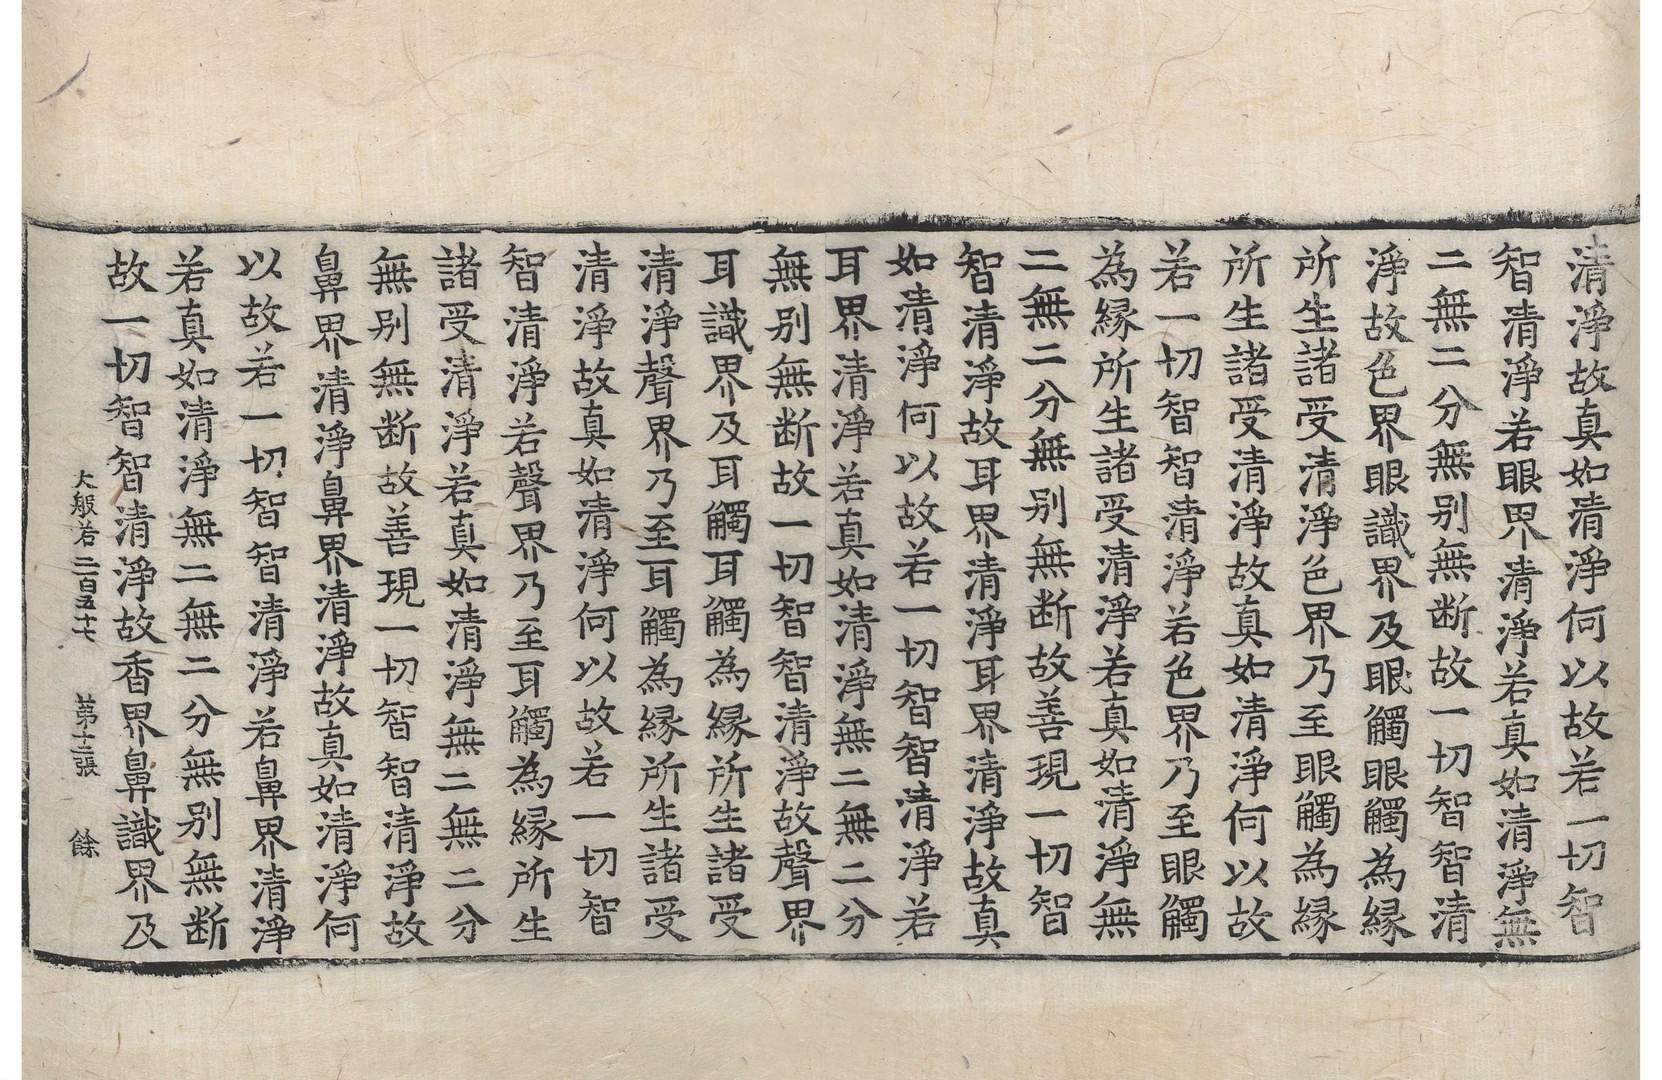 清淨故真如清淨何以故若一切智
智清淨若眼界清淨若真如清淨無
二無二分無别無断故一切智智清
淨故色界眼識界及眼觸眼觸為縁
所生諸受清淨色界乃至眼觸為縁
所生諸受清淨故真如清淨何以故
若一切智智清淨若色界乃至眼觸
為縁所生諸受清淨若真如清淨無
二無二分無别無断故善現一切智
智清淨故耳界清淨耳界清淨故真
如清淨何以故若一切智智清淨若
耳界清淨若真如清淨無二無二分
無别無断故一切智智清淨故聲界
耳識界及耳觸耳觸為縁所生諸受
清淨聲界乃至耳觸為縁所生諸受
清淨故真如清淨何以故若一切智
智清淨若聲界乃至耳觸為縁所生
諸受清淨若真如清淨無二無二分
無别無断故善現一切智智清淨故
鼻界清淨鼻界清淨故真如清淨何
以故若一切智智清淨若鼻界清淨
若真如清淨無二無二分無别無断
故一切智智清淨故香界鼻識界及
大般若二百五十七 苐十二張 餘